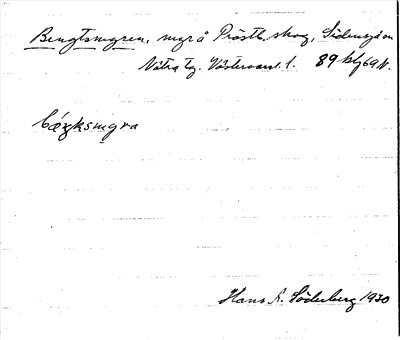 Bengtsmyren, myr å Prästb. skog, Sidensjö sn
Nätra tg. Västernorrl. l. 89 kbl 69 N.
bæŋksmyra
Hans A. Söderberg 1930